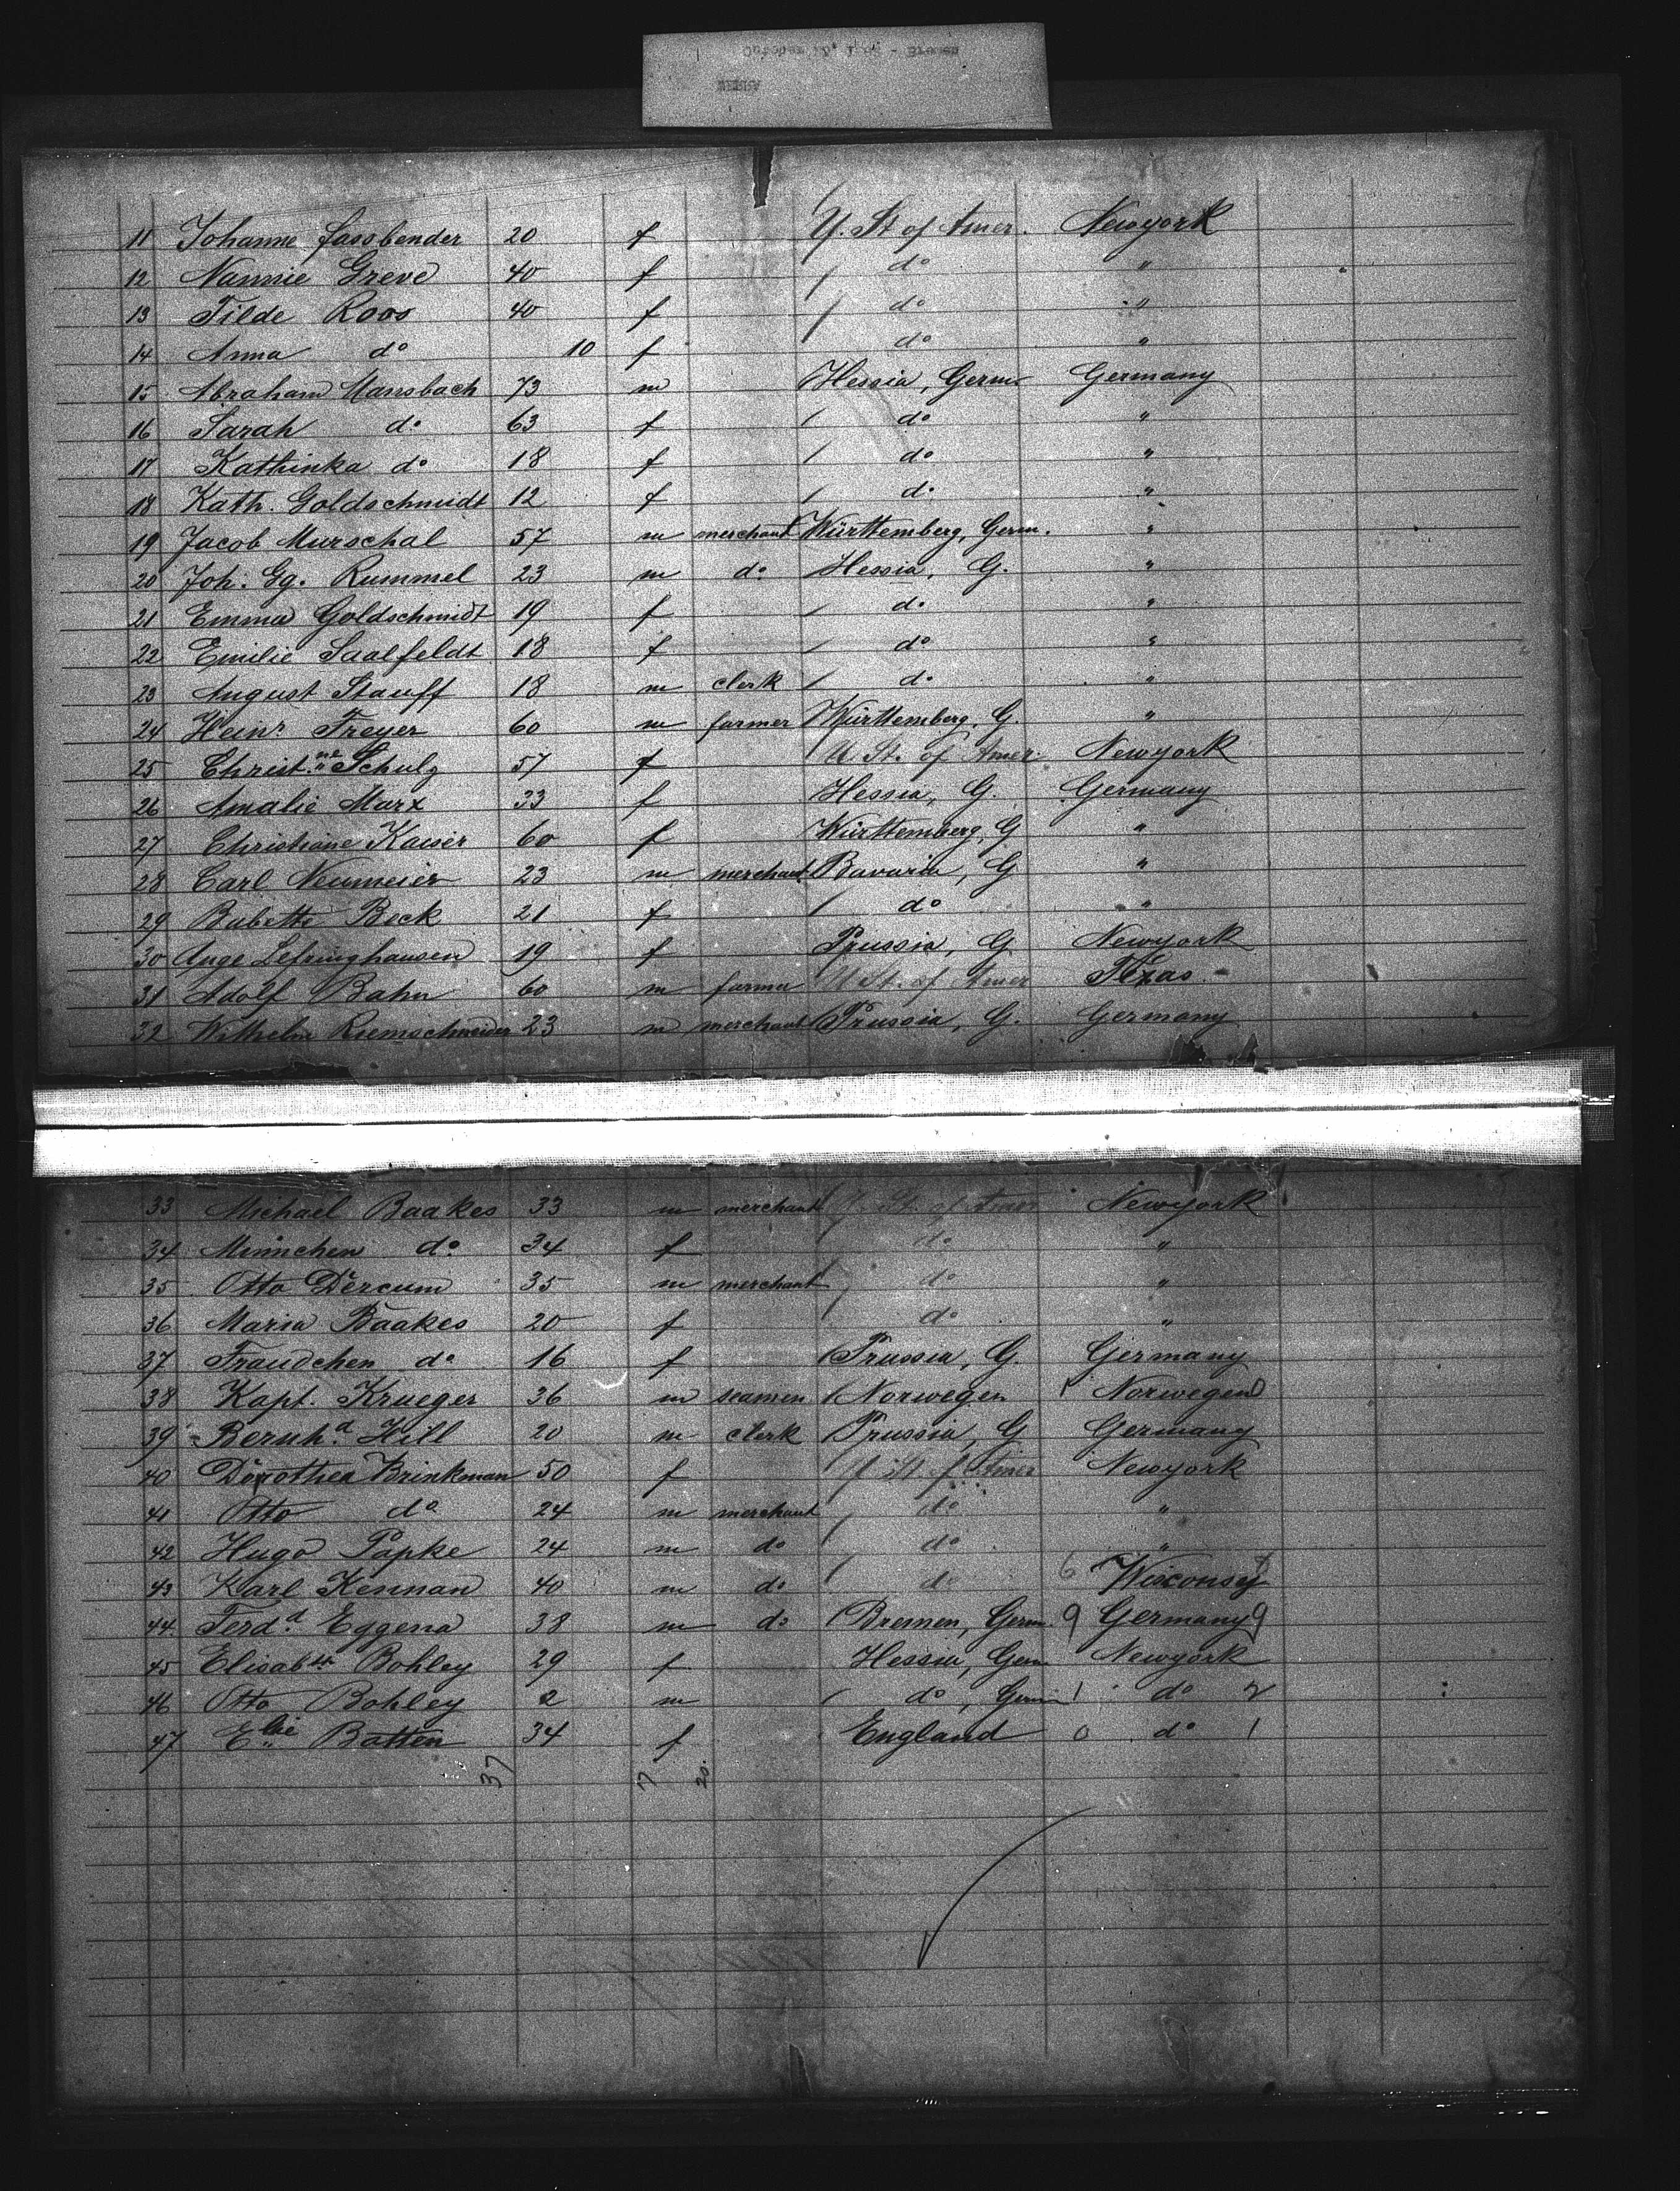 11 Johanne Fassbender 20 f U. St of Amer. Newyork
12 Nannie Greve 40 f do "
13 Tilde Roos 40 f do "
14 Anna do 10 f do "
15 Abraham Mansbach 73 m Hessia, Germ. Germany
16 Sarah do 63 f do "
17 Kathinka do 18 f do "
18 Kath. Goldschmidt 12 f do "
19 Jacob Murschal 57 m merchant Württemberg, Germ. "
20 Joh. Gg. Rummel 23 m do Hessia, G. "
21 Emma Goldschmidt 19 f do "
22 Emilie Saalfeldt 18 f do "
23 August Stauff 18 m clerk do "
24 Heinr Freyer 60 m farmer Württemberg, G "
25 Christ.ne Schulz 57 f U St. of Amer. Newyork
26 Amalie Marx 33 f Hessia, G. Germany
27 Christiane Kaiser 60 f Württemberg, G "
28 Carl Neumeier 23 m merchant Bavaria, G "
29 Babette Beck 21 f do "
30 Auge Lefringhausen 19 f Prussia, G Newyork
31 Adolf Bahn 60 m farmer U St. of Amer Texas
32 Wilhelm Riemschneider 23 m merchant Prussia, G. Germany
33 Michael Baakes 33 m merchant U. St. of Amer Newyork
34 Minchen do 34 f do "
35 Otto Dercum 35 m merchant do "
36 Maria Baakes 20 f do "
37 Traudchen do 16 f Prussia, G. Germany
38 Kapt. Krueger 36 m seamen Norwegen 1 Norwegen
39 Bernhd Hill 20 m clerk Prussia, G Germany
40 Dorothea Brinkman 50 f U St. of Amer Newyork
41 Otto do 24 m merchant do "
42 Hugo Papke 24 m do do "
43 Karl Kennan 40 m do do 6 Wisconsy
44 Ferdd Eggena 38 m do Bremen, Germ. 9 Germany 9
45 Elisabth Bohley 29 f Hessia, Germ Newyork
46 Otto Bohley 2 m do, Germ 1 do 2
47 Elie Batten 34 f England 0 do 1
37 17 20